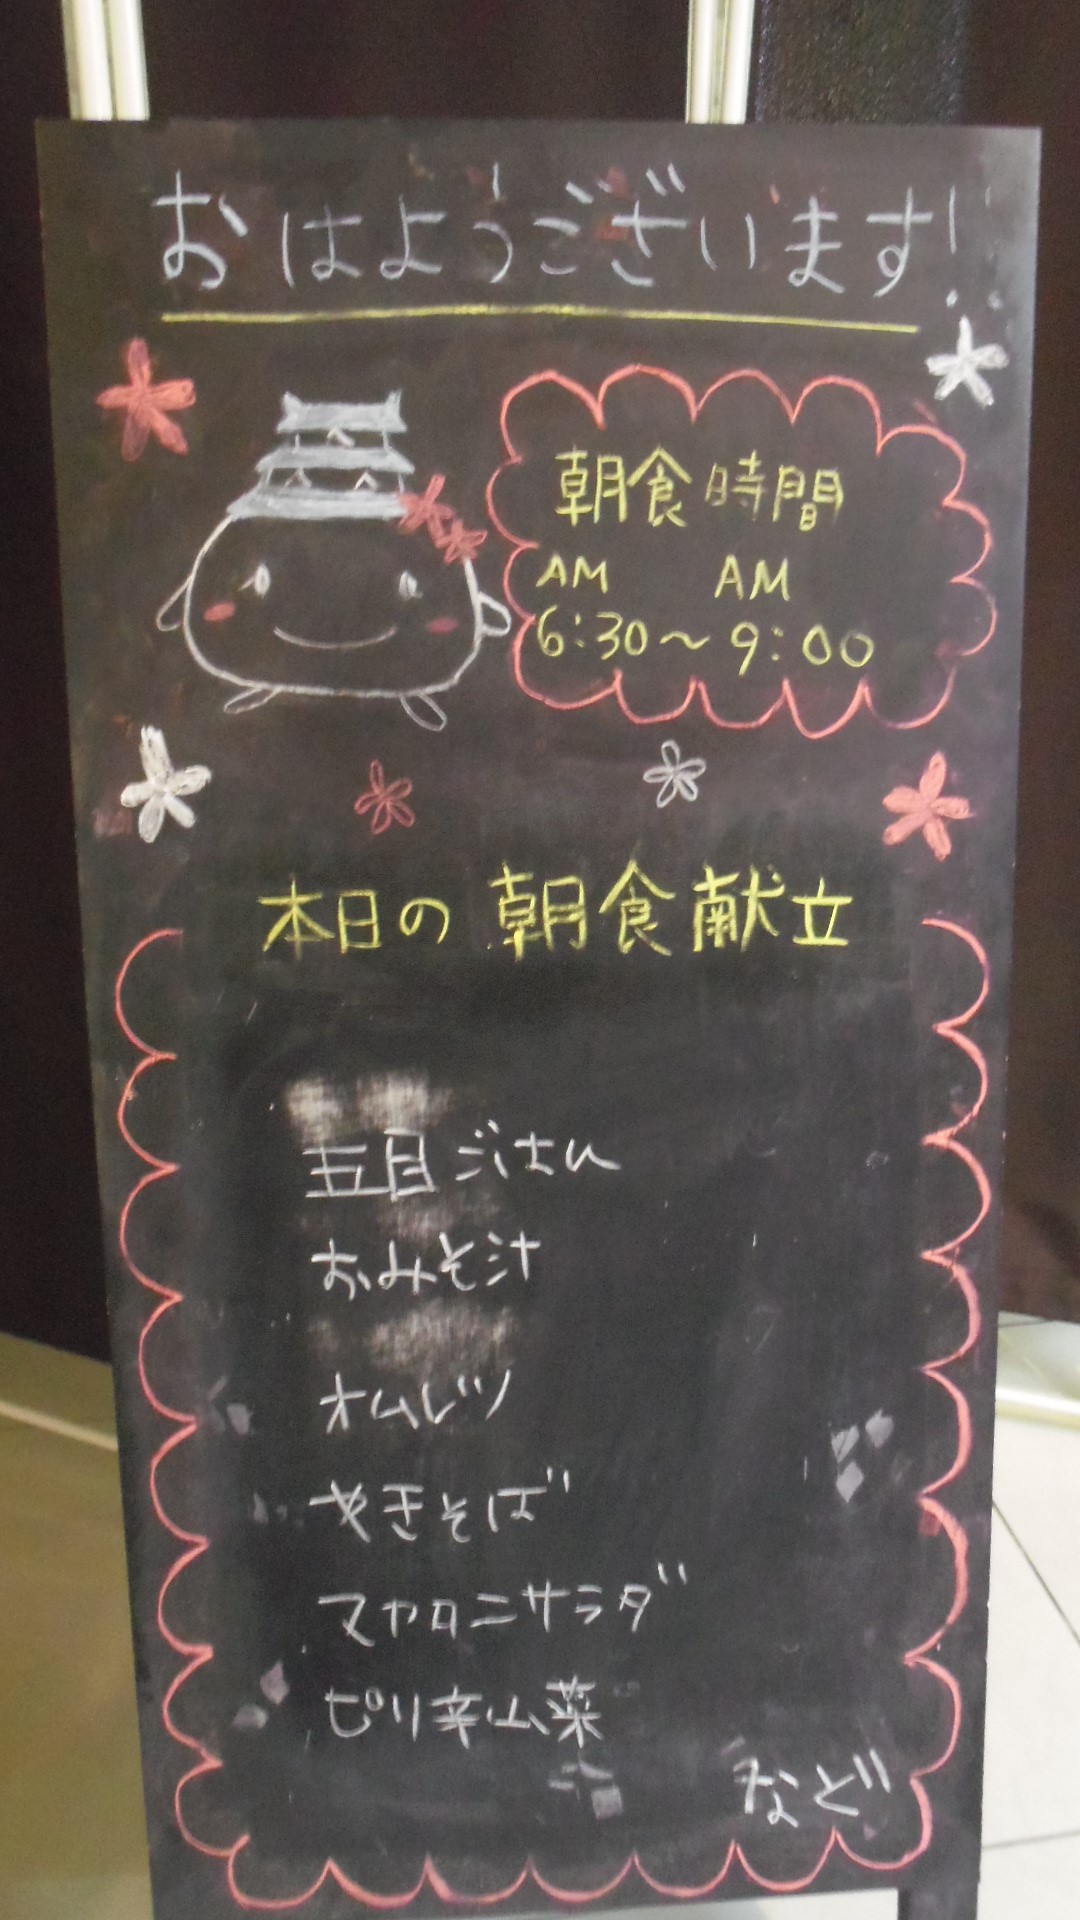 おはようございます!!
朝食時間
AM AM
6:30～9:00
本日の朝食献立
五目ごはん
おみそ汁
オムレツ
やきそば
マカロニサラダ
ピリ辛山菜
など